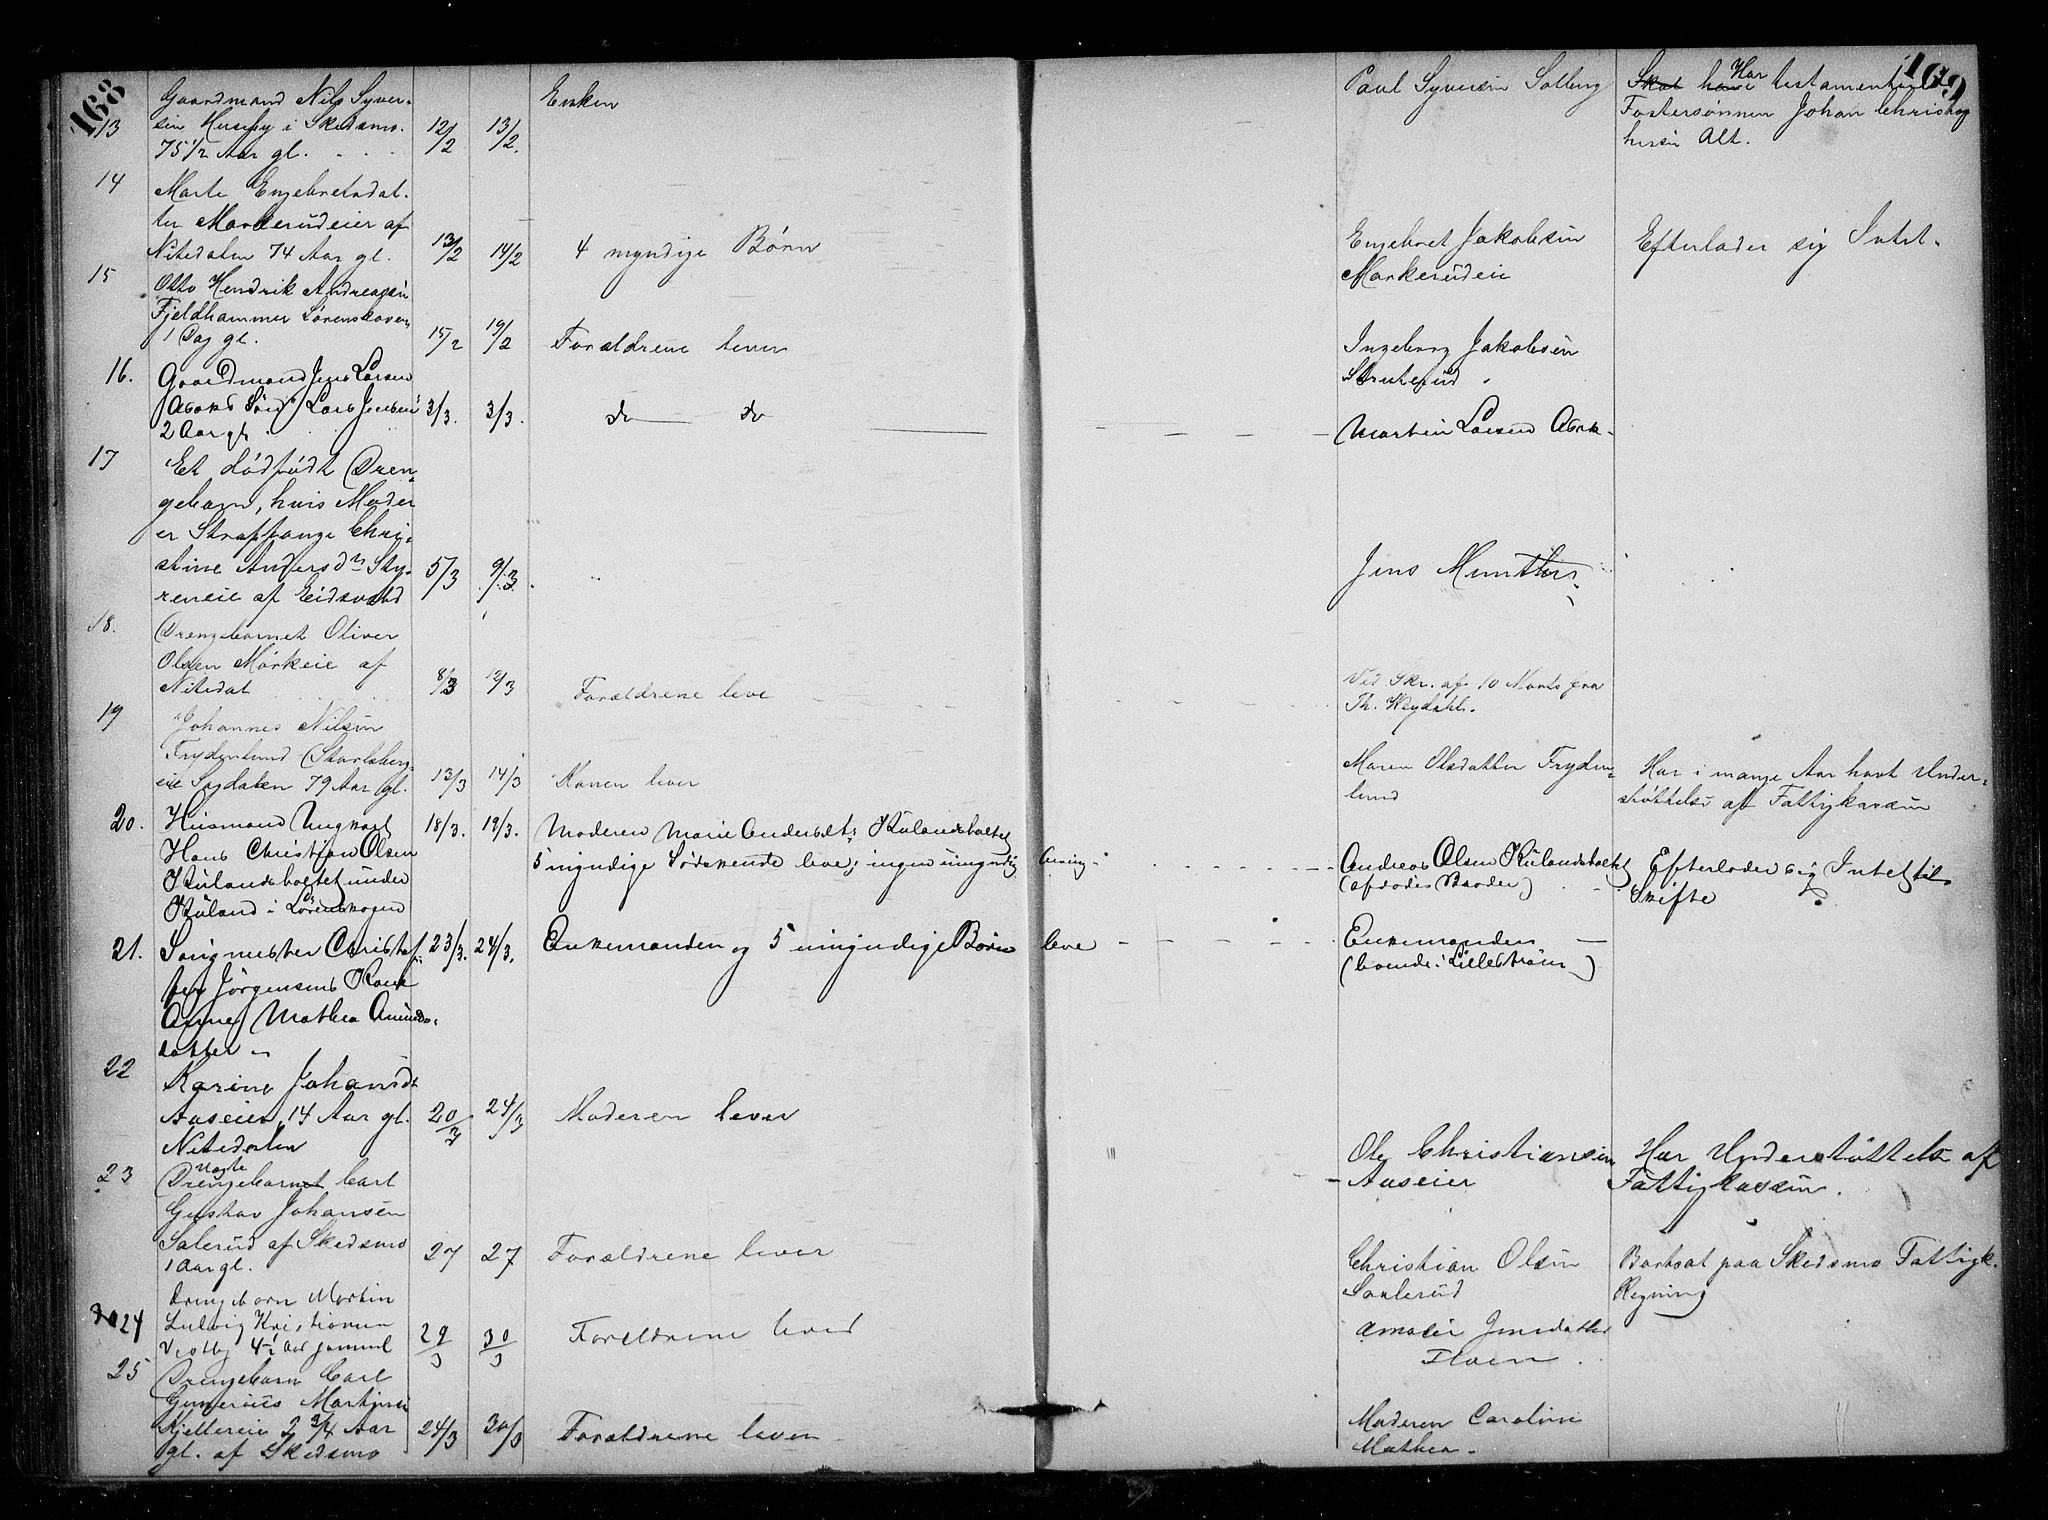 168
169
13
Gaardmand Nils Syver-
sen Huseby i Skedsmo.
75 1/2 Aar gl.
12/2
13/2.
Enken
Paul Syversen Solberg
Skal have Har testamenteret
Fostersønnen Johan
Alt.
14
Marte Engebretsdat-
ter Markerudeier af
Nitedalen 74 Aar gl.
13/2
14/2
4 myndige Børn
Engebret Jakobsen
Markerudeie
Efterlader sig Intet.
15
Otto Hendrik Andreasen
Fjeldhammer Lørenskoven
1 Dag gl.
15/2
19/2
Forældrene lever
Ingeborg Jakobsen
Struterud.
16.
Gaardmand Jens Larsen
Asaks Søn Lars Jensen
2 Aar gl.
3/3.
3/3.
do do
Martin Larsen Asak
17
Et dødfødt Dren-
gebarn, hvis Moder
er Straffange Chri-
stine Andersdr Sty-
reneie af Eidsvold
5/3
9/3.
Jens Munther
18.
Drengebarnet Oliver
Olsen Mørkeie af
Nitedal
8/3
12/3
Forældrene leve
Ved Skr. af 10 Marts fra
Th. Weydahl.
19
Johannes Nilsen
Frydenlund (Skarlsberg-
eie Sagdalen 79 Aar gl.
13/3
14/3
Konen lever
Maren Olsdatter Fryden-
lund
Har i mange Aar havt Under-
støttelse af Fattigkassen
20.
Husmand Ungkarl
Hans Christian Olsen
Rulandsholtet under
Ruland i Lørenskogen
18/3.
19/3.
Moderen Marie Andersdt. Rulandsholtet
5 myndige Sødskende leve; ingen umyndig Arving.
Andreas Olsen Rulandsholtet
(afdødes Broder)
Efterlader sig Intet til
Skifte
21.
Saugmester Christof-
fer Jørgensens Kone
Anne Mathea Amunds-
datter
23/3.
24/3.
Enkemanden og 5 umyndige Børn leve
Enkemanden
(boende i Lillestrøm)
22
Karine Johansdt
Aaseier, 14 Aar gl.
Nitedalen
20/3
24/3
Moderen lever
Ole Christiansen
Aaseier
Har Understøttelse af
Fattigkassen.
23
Uægte
Drengebarnet Carl
Gustav Johansen
Salerud af Skedsmo
1 Aar gl.
27
27
Forældrene lever
Christian Olsen
Saxlerud
Bortsat paa Skedsmo Fattigk.
Regning
24
Drengebarn Martin
Ludvig Kristiansen
Vestby 4 1/2 Aar gammel
29/3
30/3
Forældrene lever
Amalie Jensdatter
Floen.
25
Drengebarn Carl
Gunerius Martinsen
Kjellereie 2 3/4 Aar
gl. af Skedsmo
24/3
30/3
Forældrene lever
Moderen Caroline
Mathea.